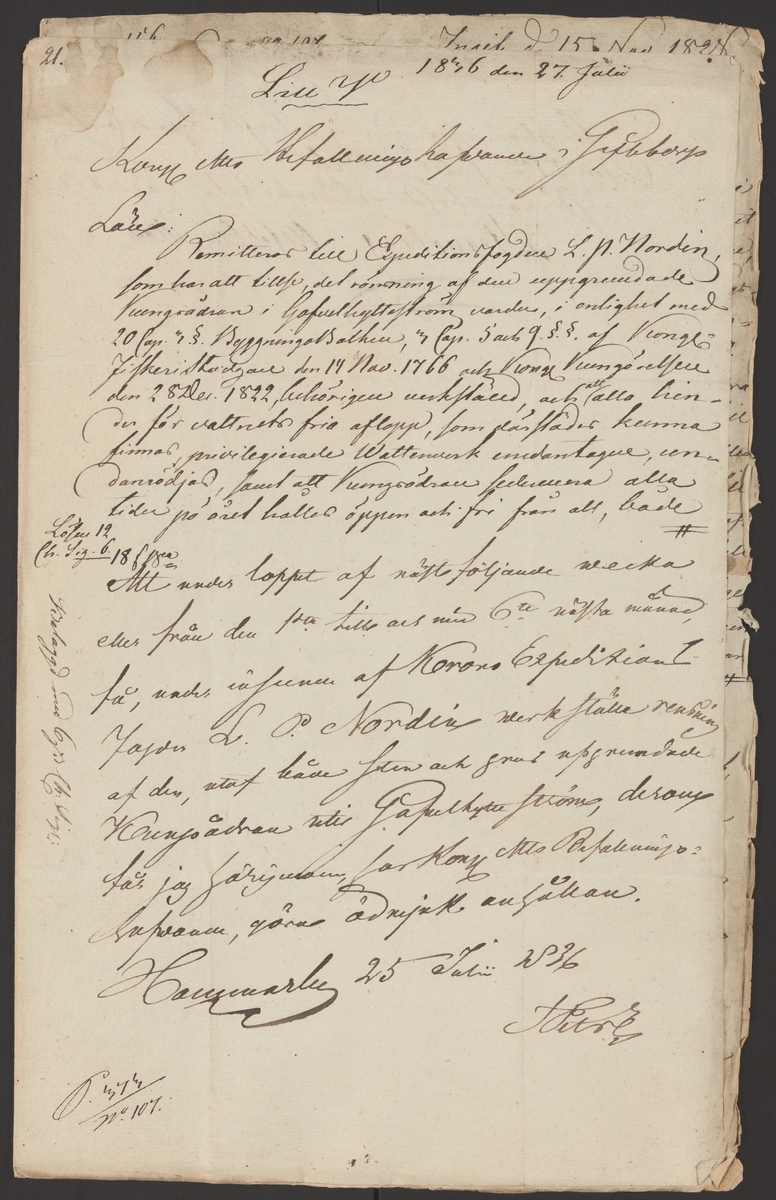 21.
Inail. d 15 Nov 1828
1836 den 27 Julii
Litt
Kongl Mts Befallningshafvande i Gefleborgs
Län:
Remitteras till Expeditionsfogden L. P. Nordin,
som har att tillse, det rensning af den uppgrundade
Kungsådran i Gafvelhytteström varder, i enlighet med
20 Cap. 3 §. ByggningaBalken, 3 Cap. 5 och 9 §.§. af Kongl
Fiskeristadgan den 14 Nov. 1766 och Kongl Kungörelsen
den 28 Dec. 1822, behörigen verkställd, och att alla hin-
der för vattnets fria aflopp, som därstädes kunna
finnas, privilegierade Wattenverk undantagne, un-
danrödjas, samt att Kungsådran sedermera alla
tider på året hålles öppen och fri från allt, både
Lösen 12
Ch. Sig. 6
18
Att under loppet af nästföljande wecka
eller från den 1sta till och med 6te nästa månad,
få, under inseende af Krono Expeditions
Fogden L. P. Nordin werkställa rensning
af den, utaf både sten och grus uppgrundade
Kungsådran uti Gafvelhytte ström, derom
får jag härigenom, hos Kongl Mts Befallnings-
hafvande, göra ödmjuk ansökan.
Hammarby 25 Julii 1836
Belagd med 6 sk Ch. Sig.
No 107.